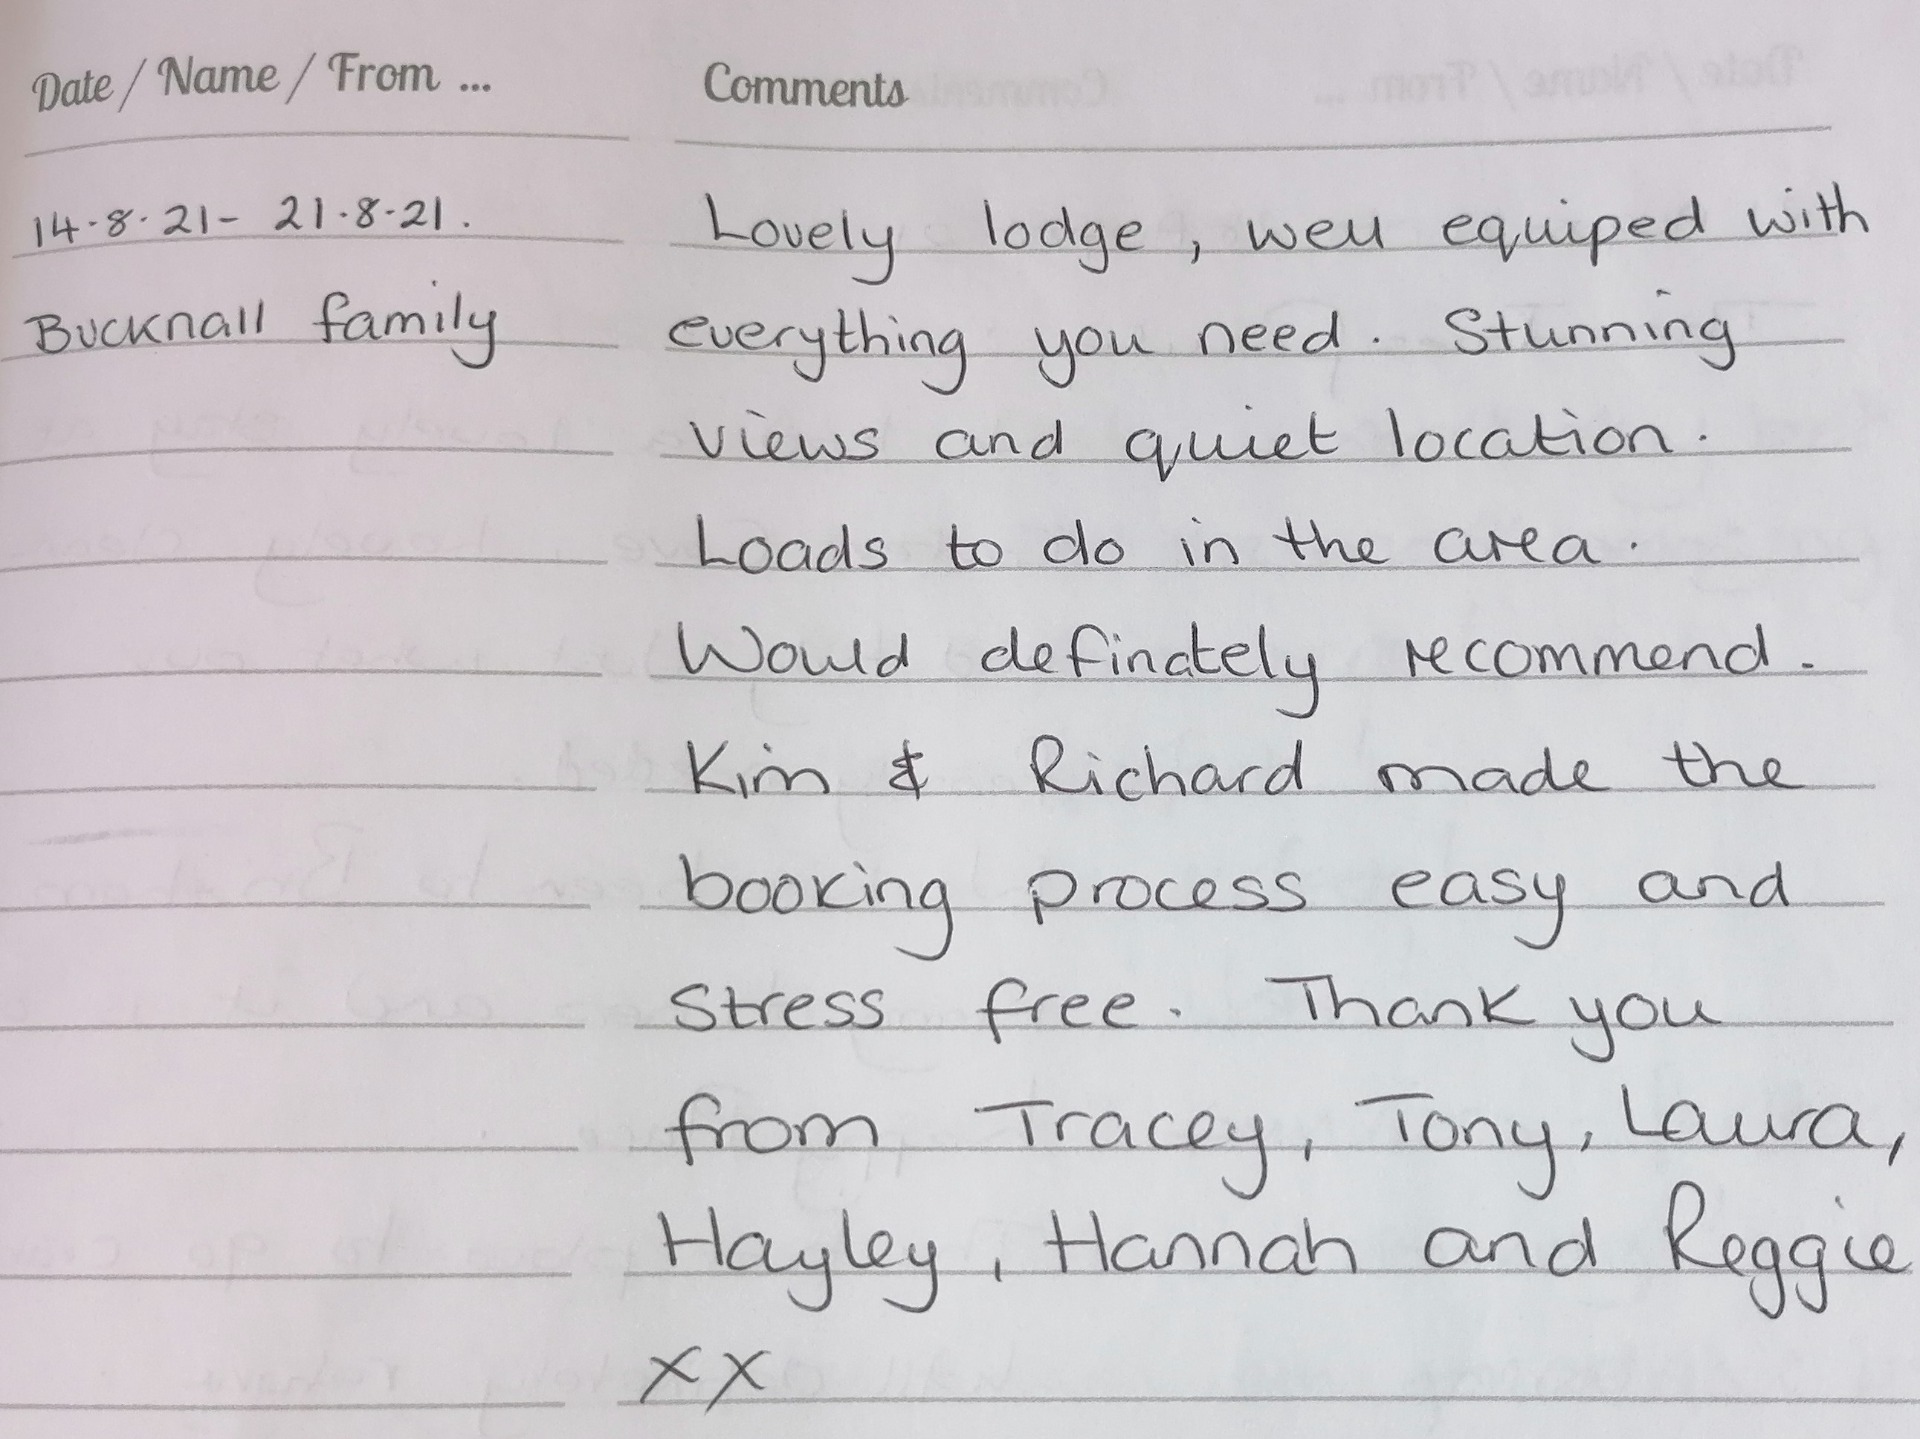 Date / Name / From ... Comments
14.8.21- 21.8.21. Lovely lodge, well equiped with
Bucknall family everything you need. Stunning
views and quiet location.
Loads to do in the area.
Would definately recommend.
Kim & Richard made the
booking process easy and
Stress free. Thank you
from Tracey, Tony, Laura,
Hayley, Hannah and Reggie
xx